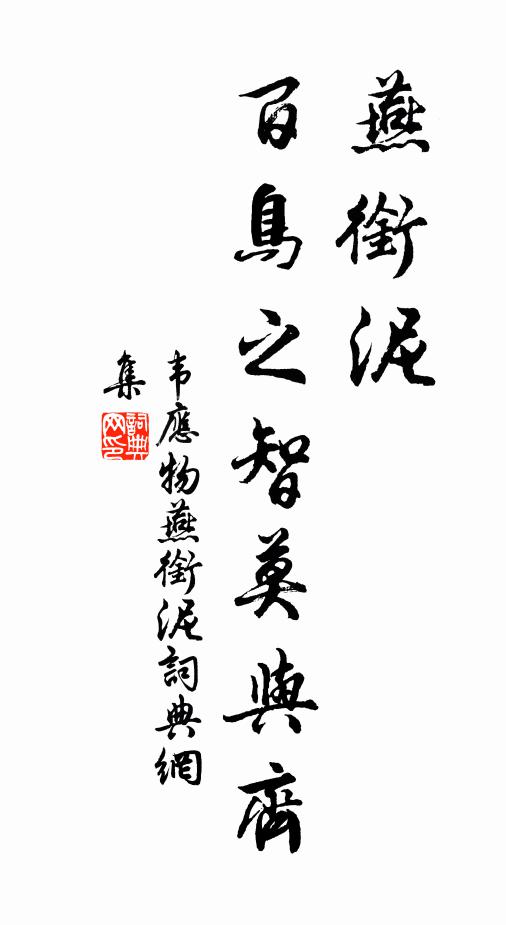 燕銜泥
百鳥之智莫與齊
韦應物燕銜泥詞典網
集
詞典
网印